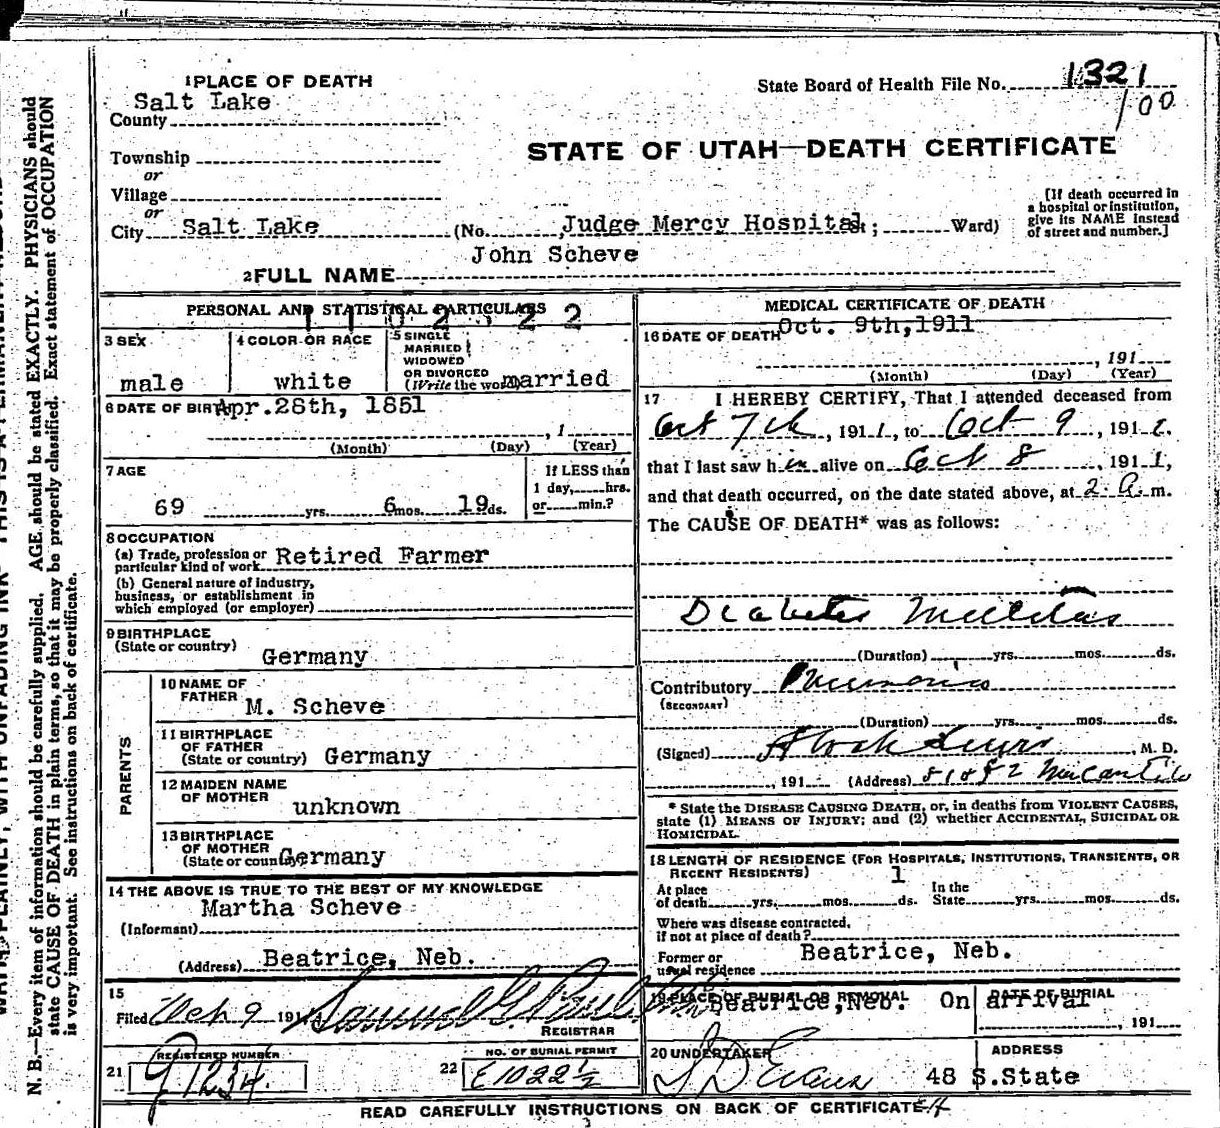 1 PLACE OF DEATH
State Board of Health File No. 1321
100
Salt Lake
County
STATE OF UTAH—DEATH CERTIFICATE
Township
or
Village
or
City Salt Lake (No. Judge Mercy Hospital St; Ward)
[If death occurred in
a hospital or institution,
give its NAME instead
of street and number.]
John Scheve
2 FULL NAME
PERSONAL AND STATISTICAL PARTICULARS
1 1 0 2 2 2
3 SEX
male
4 COLOR OR RACE
white
5 SINGLE
MARRIED
WIDOWED
OR DIVORCED
(Write the word) married
6 DATE OF BIRTH Apr. 28th, 1851
, 1
(Month) (Day) (Year)
7 AGE
69 yrs. 6 mos. 19 ds.
If LESS than
1 day, hrs.
or min.?
8 OCCUPATION
(a) Trade, profession or
particular kind of work Retired Farmer
(b) General nature of industry,
business, or establishment in
which employed (or employer)
9 BIRTHPLACE
(State or country)
Germany
PARENTS
10 NAME OF
FATHER M. Scheve
11 BIRTHPLACE
OF FATHER
(State or country) Germany
12 MAIDEN NAME
OF MOTHER unknown
13 BIRTHPLACE
OF MOTHER
(State or country) Germany
14 THE ABOVE IS TRUE TO THE BEST OF MY KNOWLEDGE
Martha Scheve
(Informant)
(Address) Beatrice, Neb.
15
Filed Oct 9 191 Samuel G. Paul
REGISTRAR
21 REGISTERED NUMBER
22 NO. OF BURIAL PERMIT
E1022½
MEDICAL CERTIFICATE OF DEATH
16 DATE OF DEATH Oct. 9th, 1911
, 191
(Month) (Day) (Year)
17 I HEREBY CERTIFY, That I attended deceased from
Oct 7th, 1911, to Oct 9, 191
that I last saw him alive on Oct 8, 1911,
and that death occurred, on the date stated above, at 2 a. m.
The CAUSE OF DEATH* was as follows:
Diabetes Mellitus
(Duration) yrs. mos. ds.
Contributory Pneumonia
(SECONDARY)
(Duration) yrs. mos. ds.
(Signed) , M. D.
, 191 (Address) Mercantile
* State the DISEASE CAUSING DEATH, or, in deaths from VIOLENT CAUSES,
state (1) MEANS OF INJURY; and (2) whether ACCIDENTAL, SUICIDAL OR
HOMICIDAL.
18 LENGTH OF RESIDENCE (FOR HOSPITALS, INSTITUTIONS, TRANSIENTS, OR
RECENT RESIDENTS) 1
At place
of death yrs. mos. ds.
In the
State yrs. mos. ds.
Where was disease contracted,
if not at place of death?
Former or
usual residence Beatrice, Neb.
19 PLACE OF BURIAL OR REMOVAL Beatrice, Neb.
DATE OF BURIAL On arrival
, 191
20 UNDERTAKER
S D Evans
ADDRESS
48 S. State
READ CAREFULLY INSTRUCTIONS ON BACK OF CERTIFICATE
N. B.—Every item of information should be carefully supplied. AGE should be stated EXACTLY. PHYSICIANS should
state CAUSE OF DEATH in plain terms, so that it may be properly classified. Exact statement of OCCUPATION
is very important. See instructions on back of certificate.